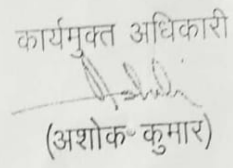 कार्यमुक्त अधिकारी
(अशोक कुमार)